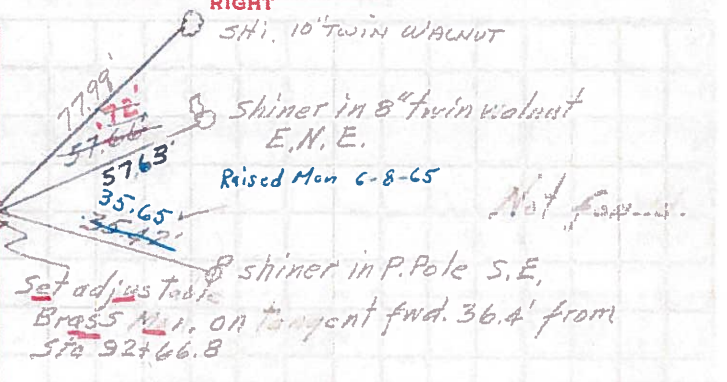 RIGHT
SHI. 10" TWIN WALNUT
77.99'
.72'
57.66'
57.63'
shiner in 8" twin walnut
E.N.E.
Raised Mon 6-8-65
35.65
35.42'
Not
shiner in P.Pole S.E.
Set adjustable
Brass Mon. on tangent fwd. 36.4' from
Sta 92+66.8